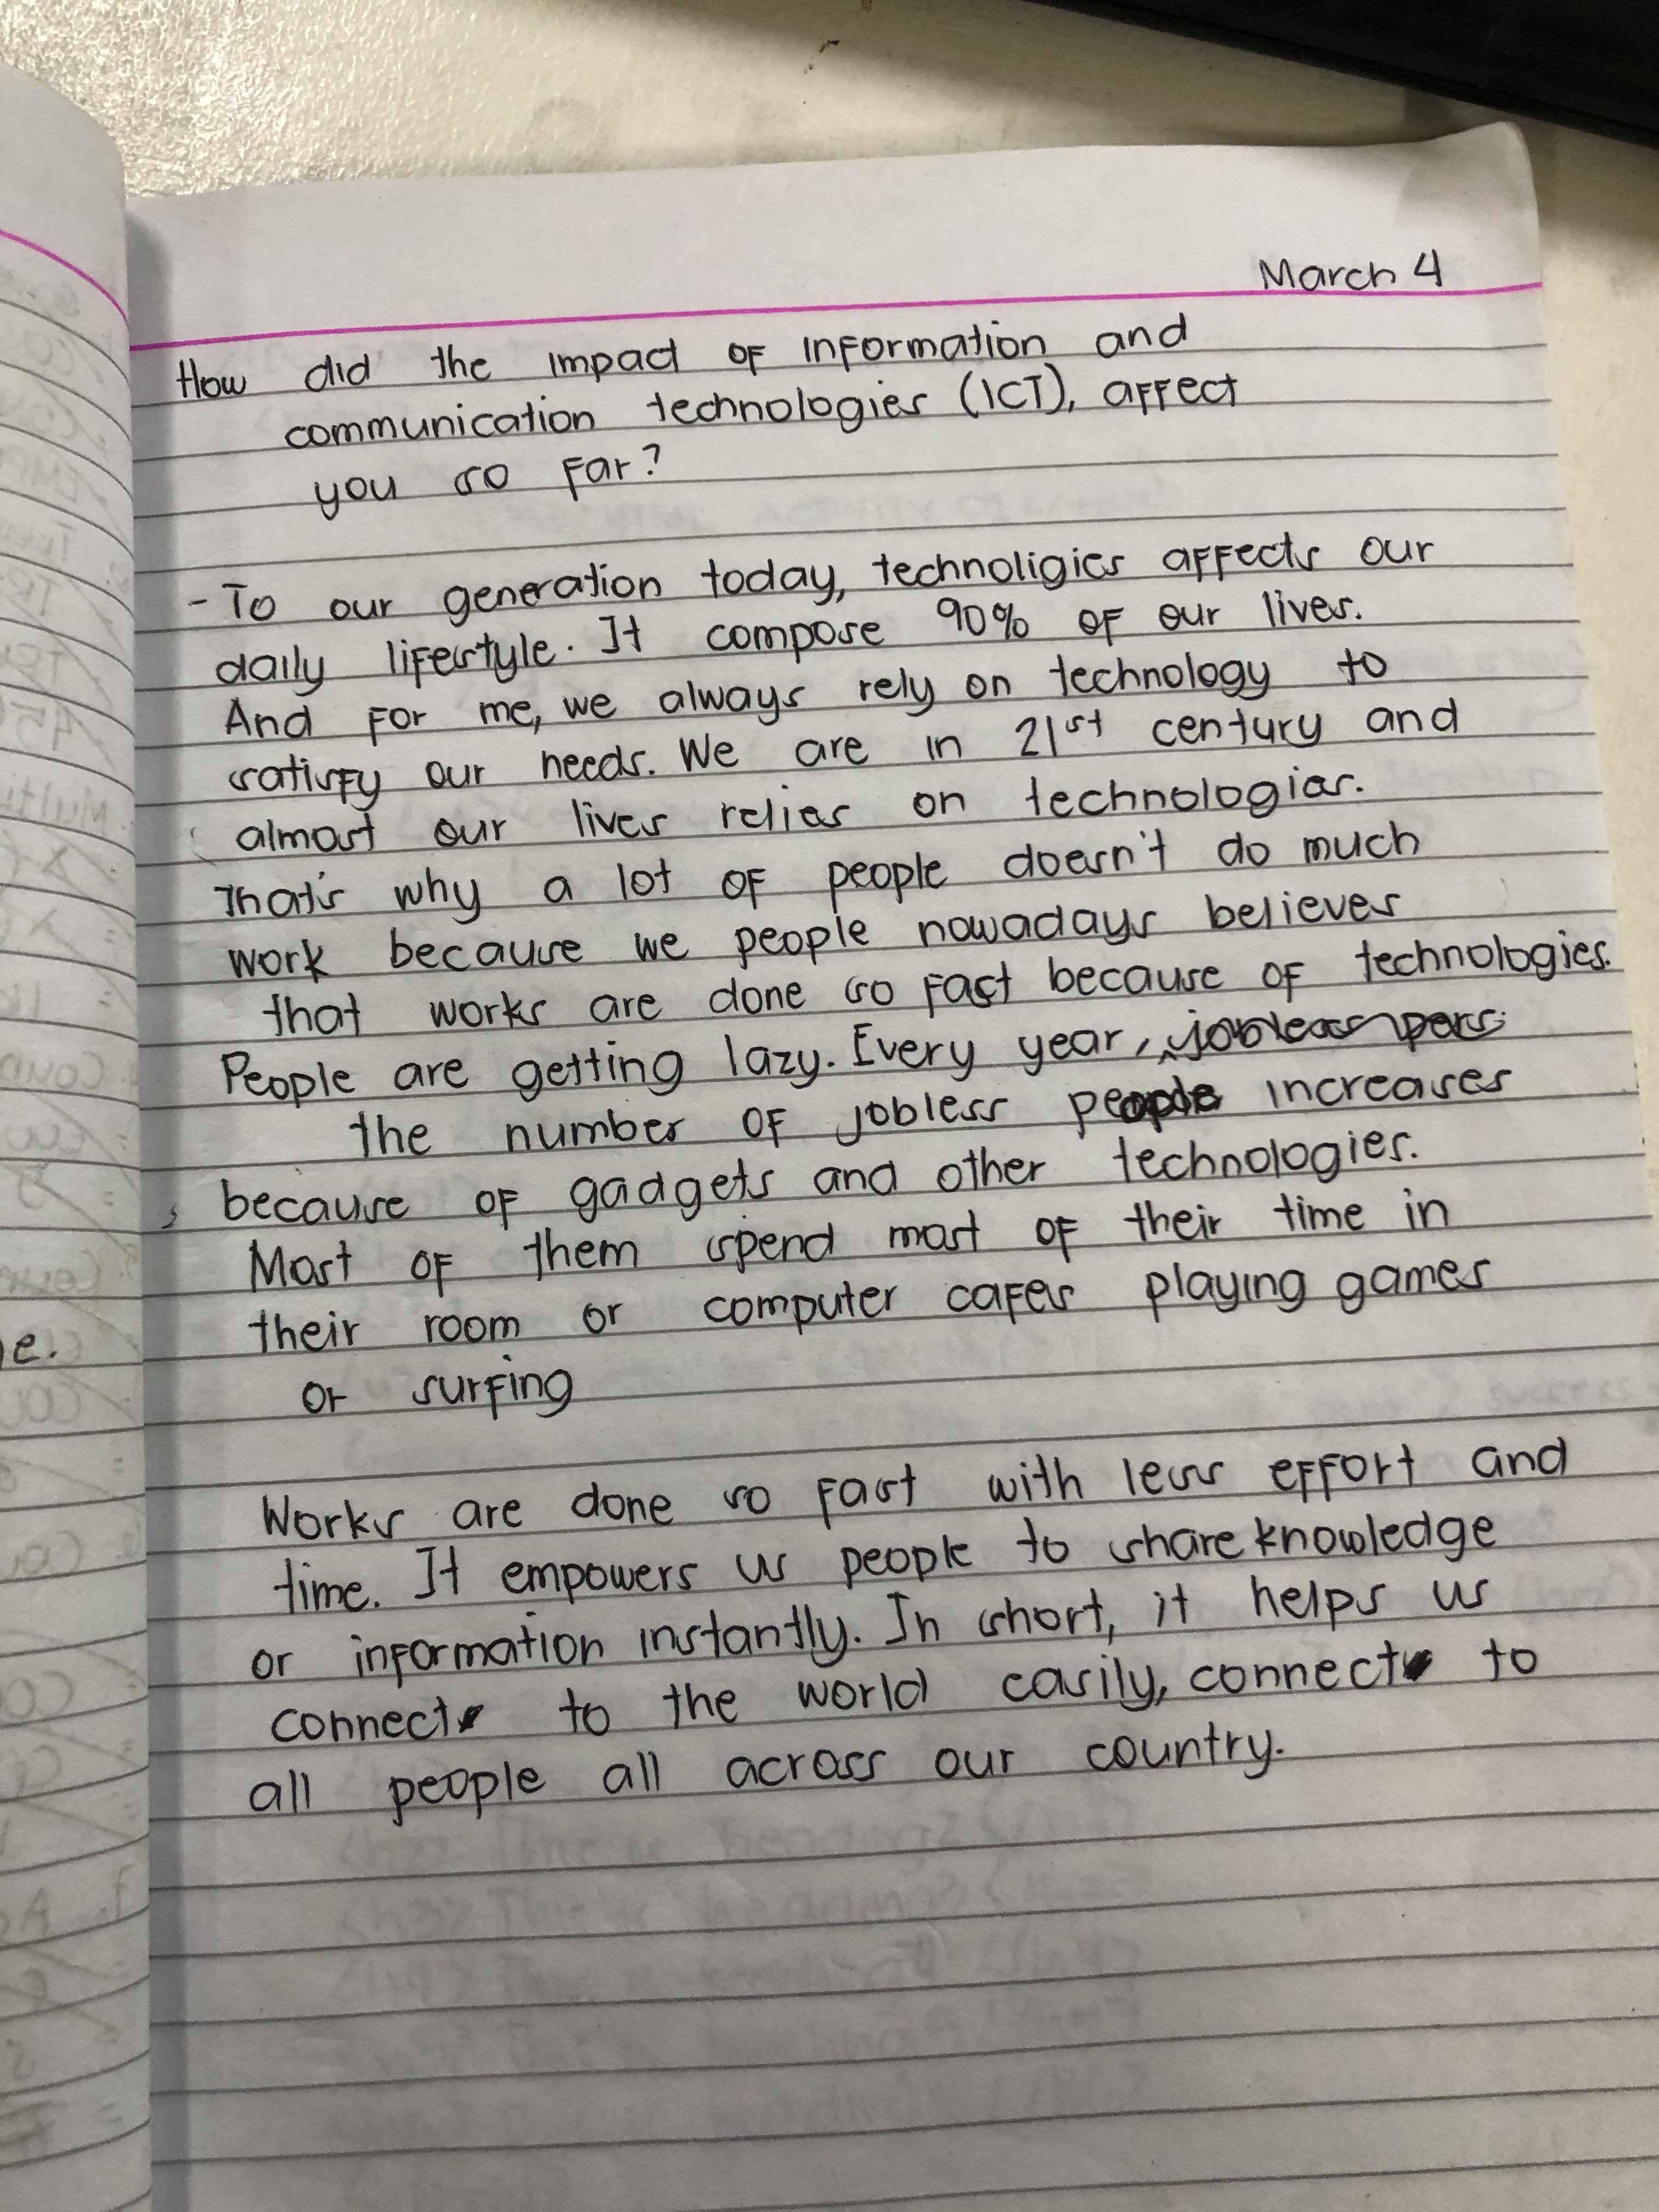 March 4
How did the impact of information and
communication technologies (ICT), affect
you so far?
- To our generation today, technoligies affects our
daily lifestyle. It compose 90% of our lives.
And for me, we always rely on technology to
satisfy our needs. We are in 21st century and
almost our lives relies on technologies.
That's why a lot of people doesn't do much
work because we people nowadays believes
that works are done so fast because of technologies.
People are getting lazy. Every year, jobless pers
the number of jobless people increases
because of gadgets and other technologies.
Most of them spend most of their time in
their room or computer cafes playing games
or surfing
Works are done so fast with less effort and
time. It empowers us people to share knowledge
or information instantly. In short, it helps us
connect to the world easily, connect to
all people all across our country.
e.